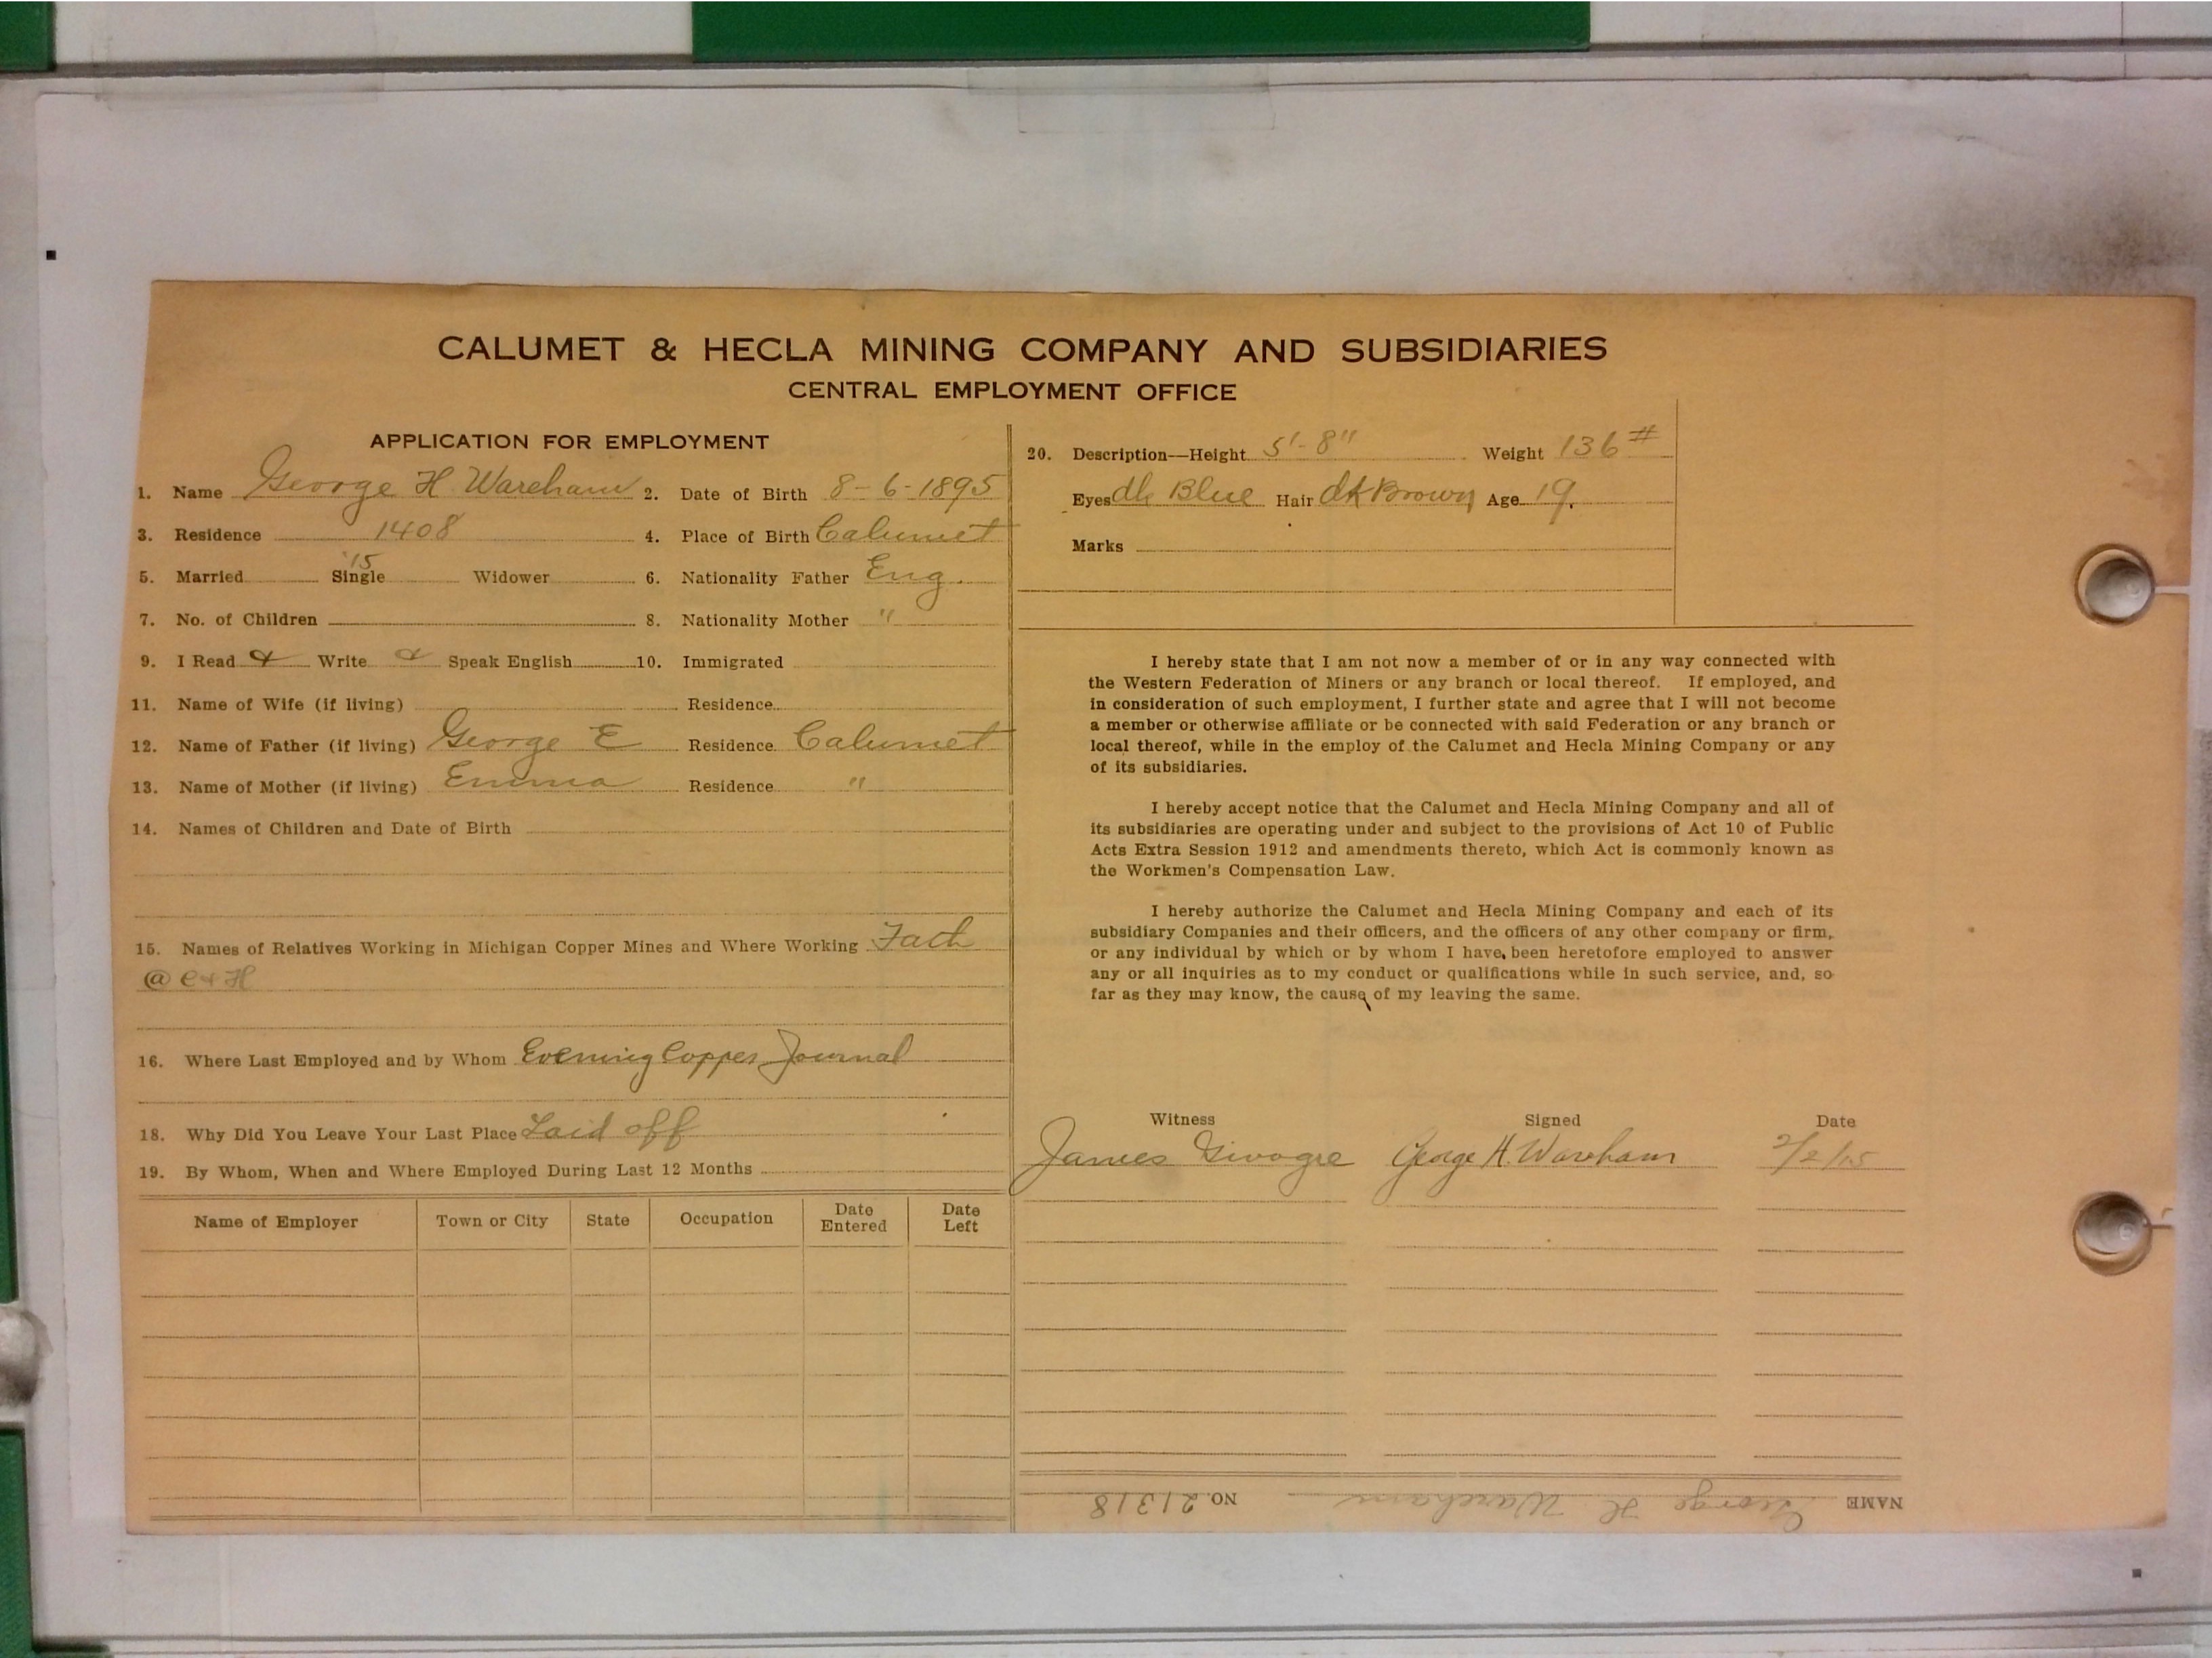 CALUMET & HECLA MINING COMPANY AND SUBSIDIARIES
CENTRAL EMPLOYMENT OFFICE
APPLICATION FOR EMPLOYMENT
1. Name George H Wareham 2. Date of Birth 8-6-1895
3. Residence 1408 4. Place of Birth Calumet
5. Married Single '15 Widower 6. Nationality Father Eng.
7. No. of Children 8. Nationality Mother "
9. I Read & Write & Speak English 10. Immigrated
11. Name of Wife (if living) Residence
12. Name of Father (if living) George E Residence Calumet
13. Name of Mother (if living) Emma Residence "
14. Names of Children and Date of Birth
15. Names of Relatives Working in Michigan Copper Mines and Where Working Fath
@ C & H
16. Where Last Employed and by Whom Evening Copper Journal
18. Why Did You Leave Your Last Place Laid off
19. By Whom, When and Where Employed During Last 12 Months
Name of Employer Town or City State Occupation Date Entered Date Left
20. Description—Height 5'-8" Weight 136#
Eyes dk Blue Hair dk Brown Age 19.
Marks
I hereby state that I am not now a member of or in any way connected with
the Western Federation of Miners or any branch or local thereof. If employed, and
in consideration of such employment, I further state and agree that I will not become
a member or otherwise affiliate or be connected with said Federation or any branch or
local thereof, while in the employ of the Calumet and Hecla Mining Company or any
of its subsidiaries.
I hereby accept notice that the Calumet and Hecla Mining Company and all of
its subsidiaries are operating under and subject to the provisions of Act 10 of Public
Acts Extra Session 1912 and amendments thereto, which Act is commonly known as
the Workmen's Compensation Law.
I hereby authorize the Calumet and Hecla Mining Company and each of its
subsidiary Companies and their officers, and the officers of any other company or firm,
or any individual by which or by whom I have been heretofore employed to answer
any or all inquiries as to my conduct or qualifications while in such service, and, so
far as they may know, the cause of my leaving the same.
Witness Signed Date
James George H. Wareham 2/2/15
NAME George H Wareham NO. 21318